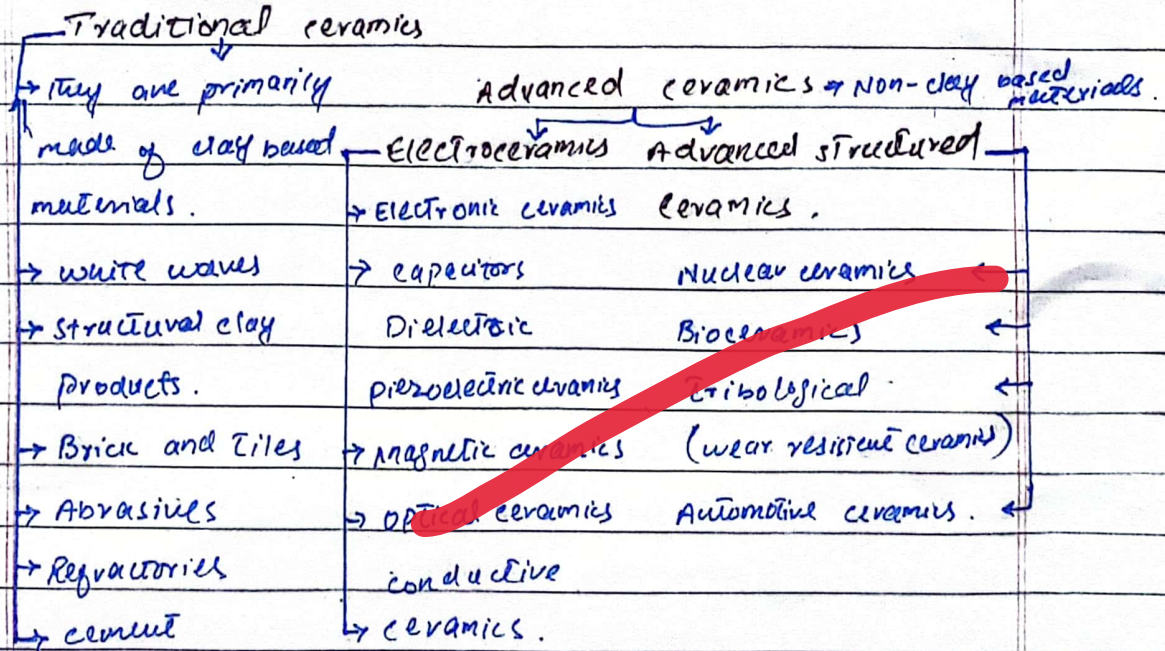 Traditional ceramics
They are primarily
made of clay based
materials.
white waves
structural clay
products.
Brick and Tiles
Abrasives
Refractories
cement
Advanced ceramics → Non-clay based materials.
Electroceramics
Electronic ceramics
capacitors
Dielectric
piezoelectric ceramics
magnetic ceramics
optical ceramics
conductive
ceramics.
Advanced structured
ceramics.
Nuclear ceramics
Bioceramics
Tribological
(wear resistent ceramics)
Automotive ceramics.